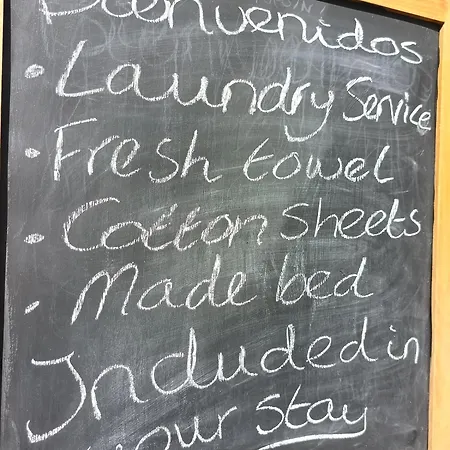 Bienvenidos
• Laundry Service
• Fresh towel
• Cotton Sheets
• Made bed
Included in
your stay